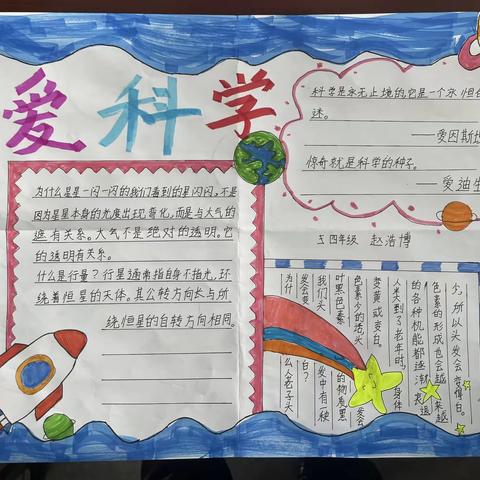 爱科学
科学是永无止境的,它是一个永恒
谜。
——爱因斯坦
惊奇就是科学的种子。
——爱迪生
四年级 赵浩博
为什么星星一闪一闪的我们看到的星闪闪,不是
因为星星本身的光度出现变化,而是与大气的
遮有关系。大气不是绝对的透明。它
的透明有关系。
什么是行星?行星通常指自身不指光,环
绕着恒星的天体。其公转方向长与所
绕恒星的自转方向相同。
少,所以头发会变得白。
色素的形成也会越来越
的各种机能都逐渐衰退
人米大到了老年时,身体
变黄或变白。
色素少的话头发会
叶黑色素的物质黑
我们头发中有一种
发会变白?
为什么人老了头